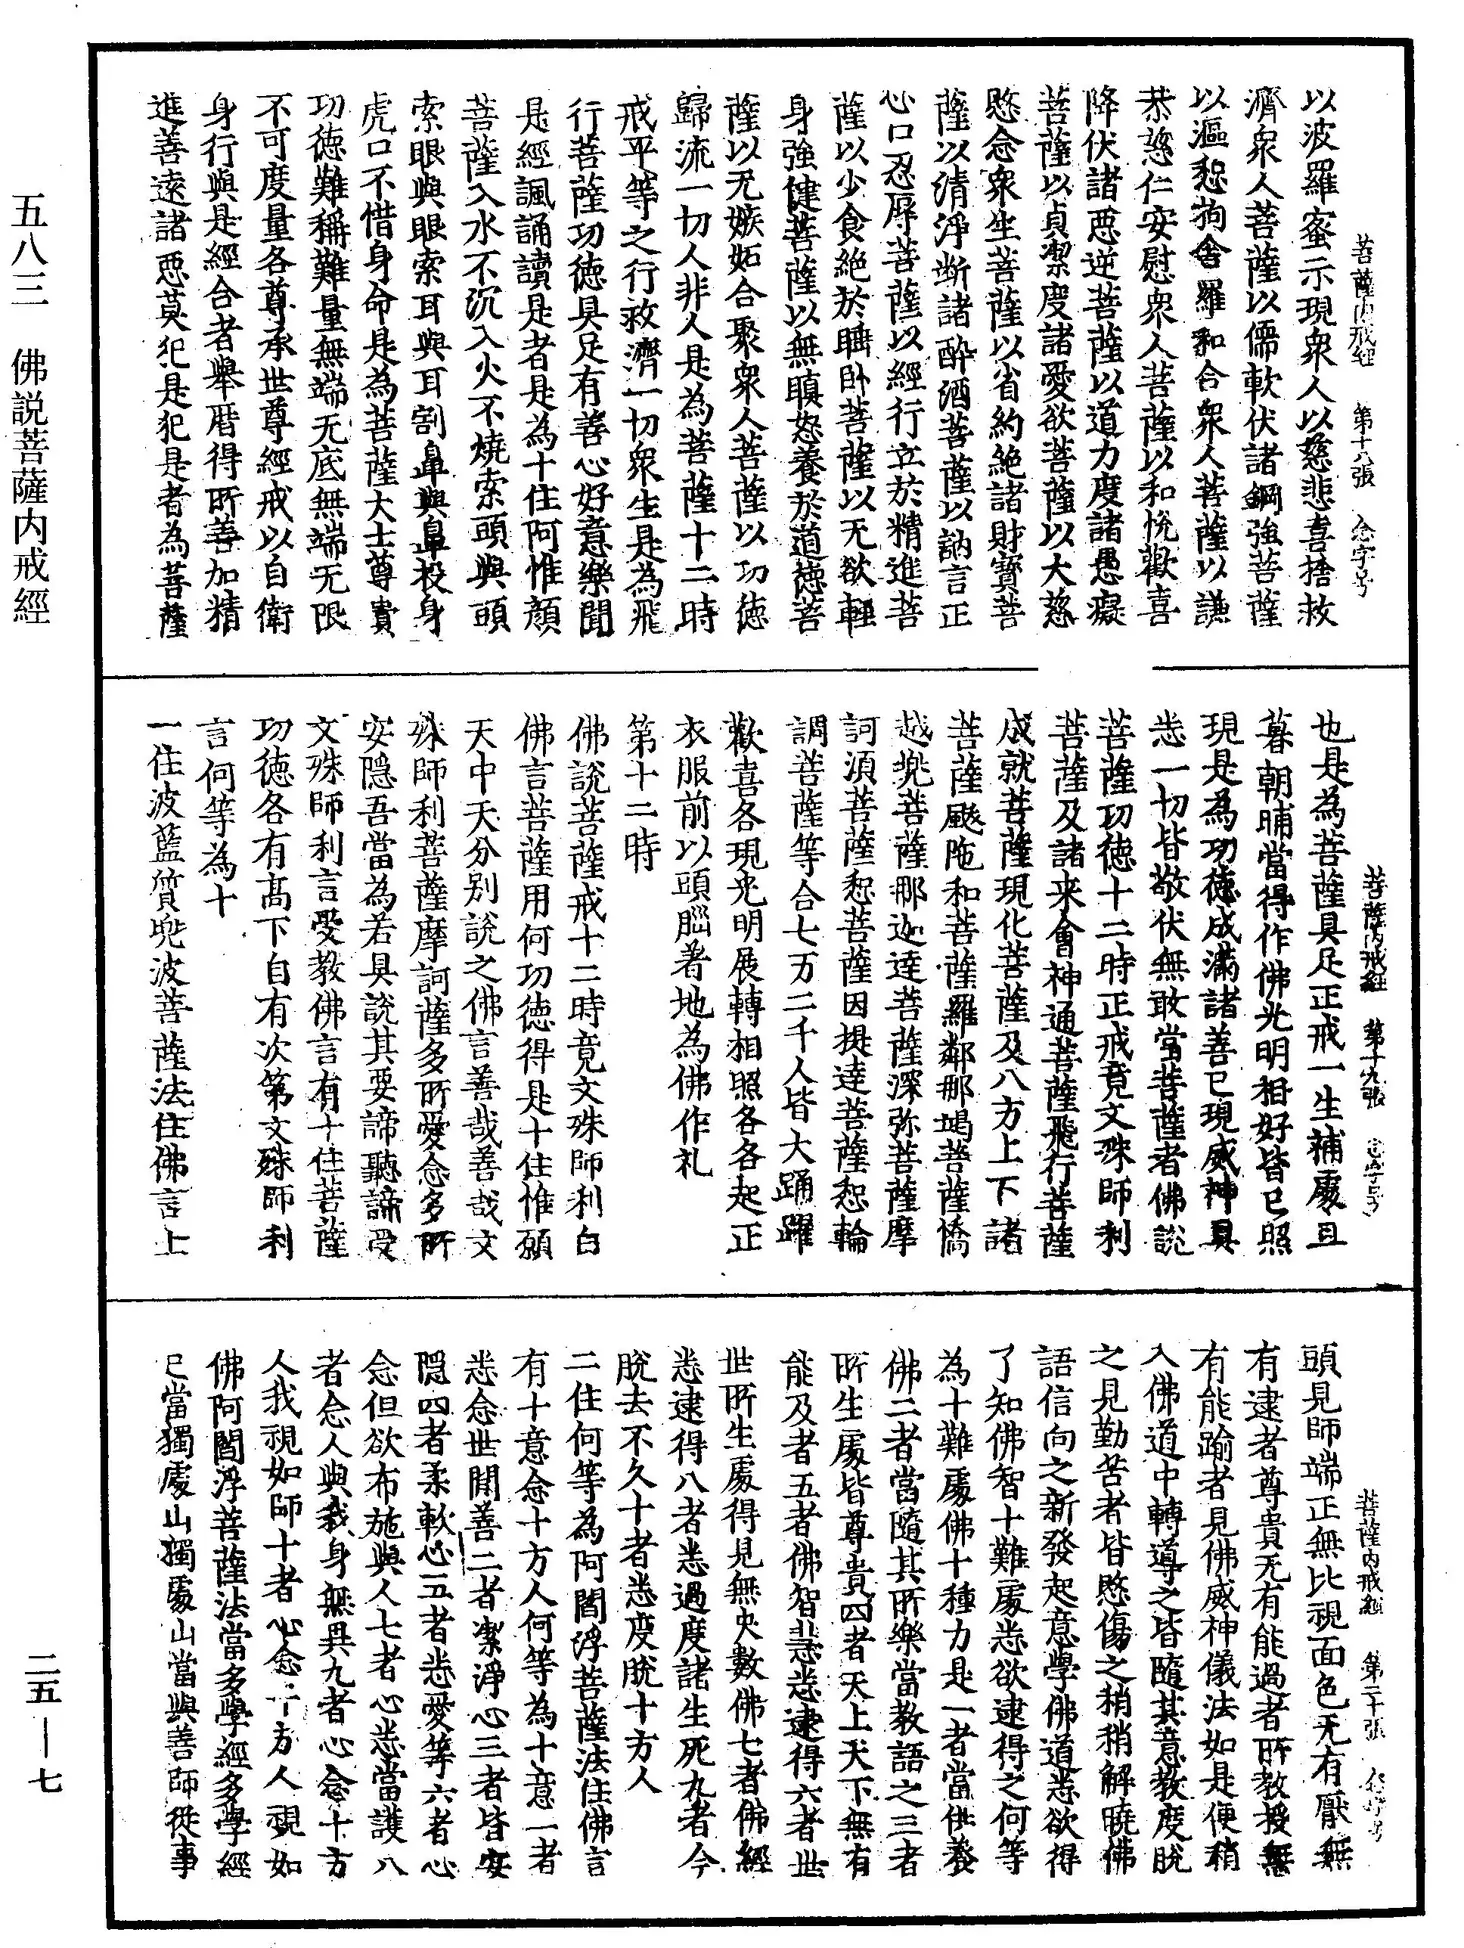 菩薩内戒經　第十八張　念字号
以波羅蜜示現衆人以慈悲喜捨救
濟衆人菩薩以儒軟伏諸鋼強菩薩
以漚惒拘舍羅和合衆人菩薩以謙
恭慈仁安慰衆人菩薩以和悅歡喜
降伏諸惡逆菩薩以道力度諸愚癡
菩薩以貞潔度諸愛欲菩薩以大慈
愍念衆生菩薩以省約絕諸財寶菩
薩以清淨斷諸酔酒菩薩以訥言正
心口忍辱菩薩以經行立於精進菩
薩以少食絕於睡卧菩薩以无欲輕
身強健菩薩以無瞋怒養於道德菩
薩以无嫉妬合聚衆人菩薩以功徳
歸流一切人非人是為菩薩十二時
戒平等之行救濟一切衆生是為飛
行菩薩功徳具足有善心好意樂聞
是經諷誦讀是者是為十住阿惟顔
菩薩入水不沉入火不燒索頭與頭
索眼與眼索耳與耳割鼻與鼻投身
虎口不惜身命是為菩薩大士尊貴
功徳難稱難量無端无底無端无限
不可度量各尊承世尊經戒以自衛
身行與是經合者舉厝得所善加精
進善遠諸惡莫犯是犯是者為菩薩
菩薩内戒經　第十九張　念字号
也是為菩薩具足正戒一生補處且
暮朝晡當得作佛光明相好皆已照
現是為功徳成滿諸善已現威神具
悉一切皆敬伏無敢當菩薩者佛説
菩薩功徳十二時正戒竟文殊師利
菩薩及諸来會神通菩薩飛行菩薩
成就菩薩現化菩薩及八方上下諸
菩薩颰陁和菩薩羅鄰那竭菩薩憍
越兠菩薩那迦達菩薩深弥菩薩摩
訶須菩薩惒菩薩因提達菩薩惒輪
調菩薩等合七万二千人皆大踊躍
歡喜各現光明展轉相照各各起正
衣服前以頭腦著地為佛作礼
第十二時
佛説菩薩戒十二時竟文殊師利白
佛言菩薩用何功徳得是十住惟願
天中天分别説之佛言善哉善哉文
殊師利菩薩摩訶薩多所愛念多所
安隱吾當為若具説其要諦聽諦受
文殊師利言受教佛言有十住菩薩
功徳各有髙下自有次第文殊師利
言何等為十
一住波藍質兠波菩薩法住佛言上
菩薩内戒經　第二十張　念字号
頭見師端正無比視面色无有厭無
有逮者尊貴无有能過者所教授無
有能踰者見佛威神儀法如是便稍
入佛道中轉導之皆隨其意教度脱
之見勤苦者皆愍傷之稍稍解曉佛
語信向之新發起意學佛道悉欲得
了知佛智十難處悉欲逮得之何等
為十難處佛十種力是一者當供養
佛二者當隨其所樂當教語之三者
所生處皆尊貴四者天上天下無有
能及者五者佛智慧悉逮得六者世
世所生處得見無央數佛七者佛經
悉逮得八者悉過度諸生死九者今
脱去不久十者悉度脱十方人
二住何等為阿闍浮菩薩法住佛言
有十意念十方人何等為十意一者
悉念世間善二者潔淨心三者皆安
隱四者柔軟心五者悉愛等六者心
念但欲布施與人七者心悉當護八
者念人與我身無異九者心念十方
人我視如師十者心念十方人視如
佛阿闍浮菩薩法當多學經多學經
已當獨處山獨處山當與善師從事
五八三　佛説菩薩内戒經
二五—七